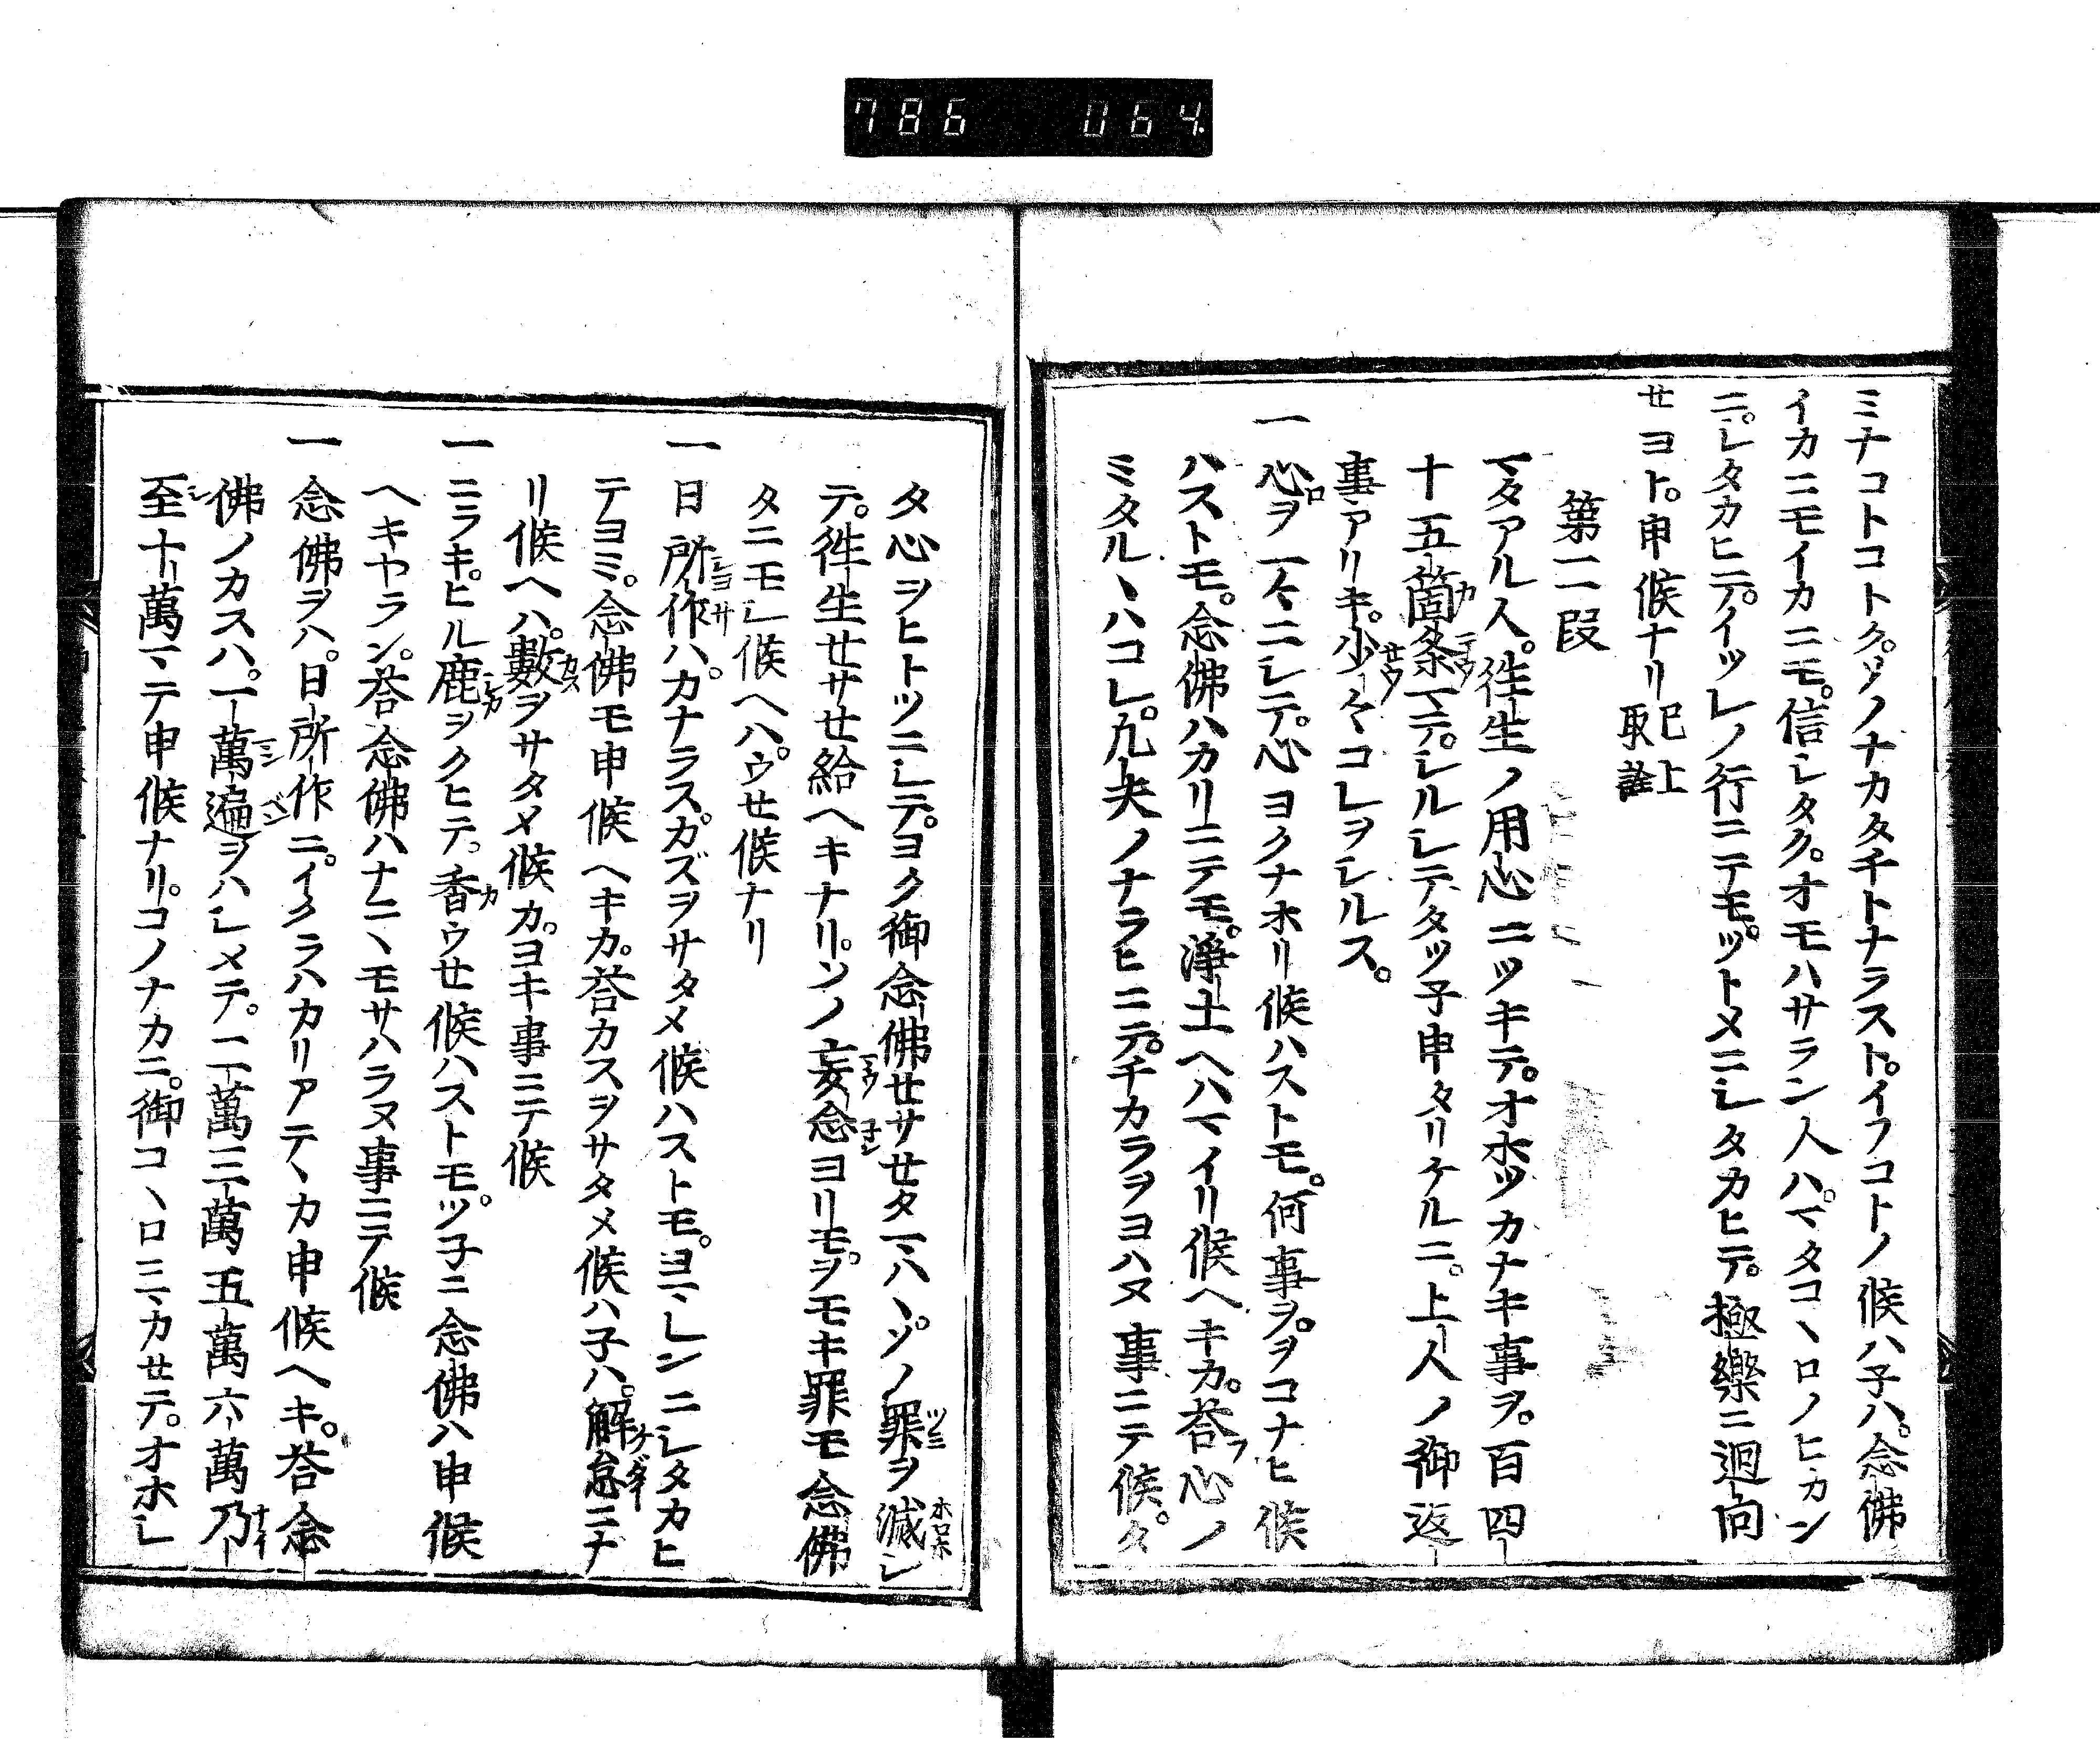 786 064
ミナコトコトク。ソノナカタチトナラスト。イフコトノ候ハ子ハ。念佛
イカニモイカニモ。信シタク。オモハサラン人ハ。マタコヽロノヒカン
ニ。シタカヒテ。イツレノ行ニテモ。ツトメニシタカヒテ。極樂ニ迴向
セヨト。申候ナリ 已上取詮
第二段
マタアル人。徃生ノ用心ニツキテ。オホツカナキ事ヲ。百四
十五箇条マテ。シルシテタツ子申タリケルニ。上人ノ御返
事アリキ。少々コレヲシルス。
一心ヲ一ニシテ。心ヨクナホリ候ハストモ。何事ヲ。ヲコナヒ候
ハストモ。念佛ハカリニテモ。淨土ヘハマイリ候ヘキカ。荅心ノ
ミタルヽハコレ。凢夫ノナラヒニテ。チカラヲヨハヌ事ニテ候。タ
タ心ヲヒトツニシテ。ヨク御念佛セサセタマハヽ。ソノ罪ヲ滅シ
テ。徃生セサセ給ヘキナリ。ソノ妄念ヨリモ。ヲモキ罪モ念佛
タニモシ候ヘハ。ウセ候ナリ
一日所作ハ。カナラスカズヲサタメ候ハストモ。ヨマレンニシタカヒ
テヨミ。念佛モ申候ヘキカ。荅カスヲサタメ候ハ子ハ。解怠ニナ
リ候ヘハ。數ヲサタメ候カ。ヨキ事ニテ候
一ニラキ。ヒル鹿ヲクヒテ。香ウセ候ハストモ。ツ子ニ念佛ハ申候
ヘキヤラン。荅念佛ハナニヽモサハラヌ事ニテ候
一念佛ヲハ。日所作ニ。イクラハカリアテヽカ申候ヘキ。荅念
佛ノカスハ。一萬遍ヲハシメテ。二萬三萬五萬六萬乃
至十萬マテ申候ナリ。コノナカニ。御コヽロニマカセテ。オホシ